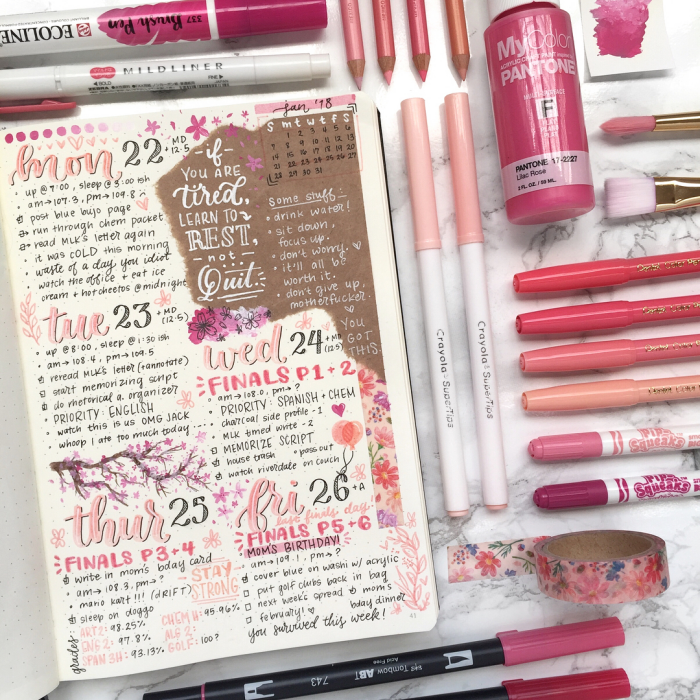 337
Brush Pen
ECOLINE
MILDLINER
FINE
MyColor
ACRYLIC COLOR
PANTONE
F
FLAT
PANTONE 17-2227
Lilac Rose
2 FL. OZ. / 59 ML
Jan '18
S m t w t f S
1 2 3 4 5 6
7 8 9 10 11 12 13
14 15 16 17 18 19 20
21 22 23 24 25 26 27
28 29 30 31
mon 22 + MD
12:5
up @ 7:00, sleep @ 3:00 ish
am → 107.3, pm → 109.8
post blue bujo page
run through chem packet
read MLK's letter again
it was COLD this morning
waste of a day you idiot
watch the office + eat ice
cream + hot cheetos @ midnight
-if-
YOU ARE
tired,
LEARN TO
REST,
-not-
Quit.
Some stuff:
drink water!
sit down,
focus up.
don't worry.
it'll all be
worth it.
don't give up,
motherfucker.
YOU
GOT
THIS.
tue 23 + MD
(12:5)
up @ 8:00, sleep @ 1:30 ish
am → 108.4, pm → 109.5
reread MLK's letter (+annotate)
start memorizing script
do rhetorical a. organizer
PRIORITY: ENGLISH
watch this is us OMG JACK
whoop I ate too much today....
wed 24 + MD
(12:5)
FINALS P1 + 2
am → 108.0, pm → ?
PRIORITY: SPANISH + CHEM
charcoal side profile - 1
MLK timed write - 2
MEMORIZE SCRIPT
house trash • pass out
watch riverdale on couch
thur 25
FINALS P3+4
write in mom's bday card
am → 108.3, pm → ?
mario kart!!! (DRIFT)
sleep on doggo
STAY
STRONG
grades:
ART 2: 98.25%
ENG 2: 97.8%
SPAN 3H: 93.13%
CHEM H: 95.96%
ALG 2:
GOLF: 100?
fri 26 + A
last finals day!
FINALS P5+6
MOM'S BIRTHDAY!
am → 109.1, pm → ?
cover blue on washi w/ acrylic
put golf clubs back in bag
next week's spread
mom's
bday dinner
february!
you survived this week!
Crayola SuperTips
Crayola SuperTips
Pip-Squeaks
Pip-Squeaks
743
Tombow ABT
Acid Free